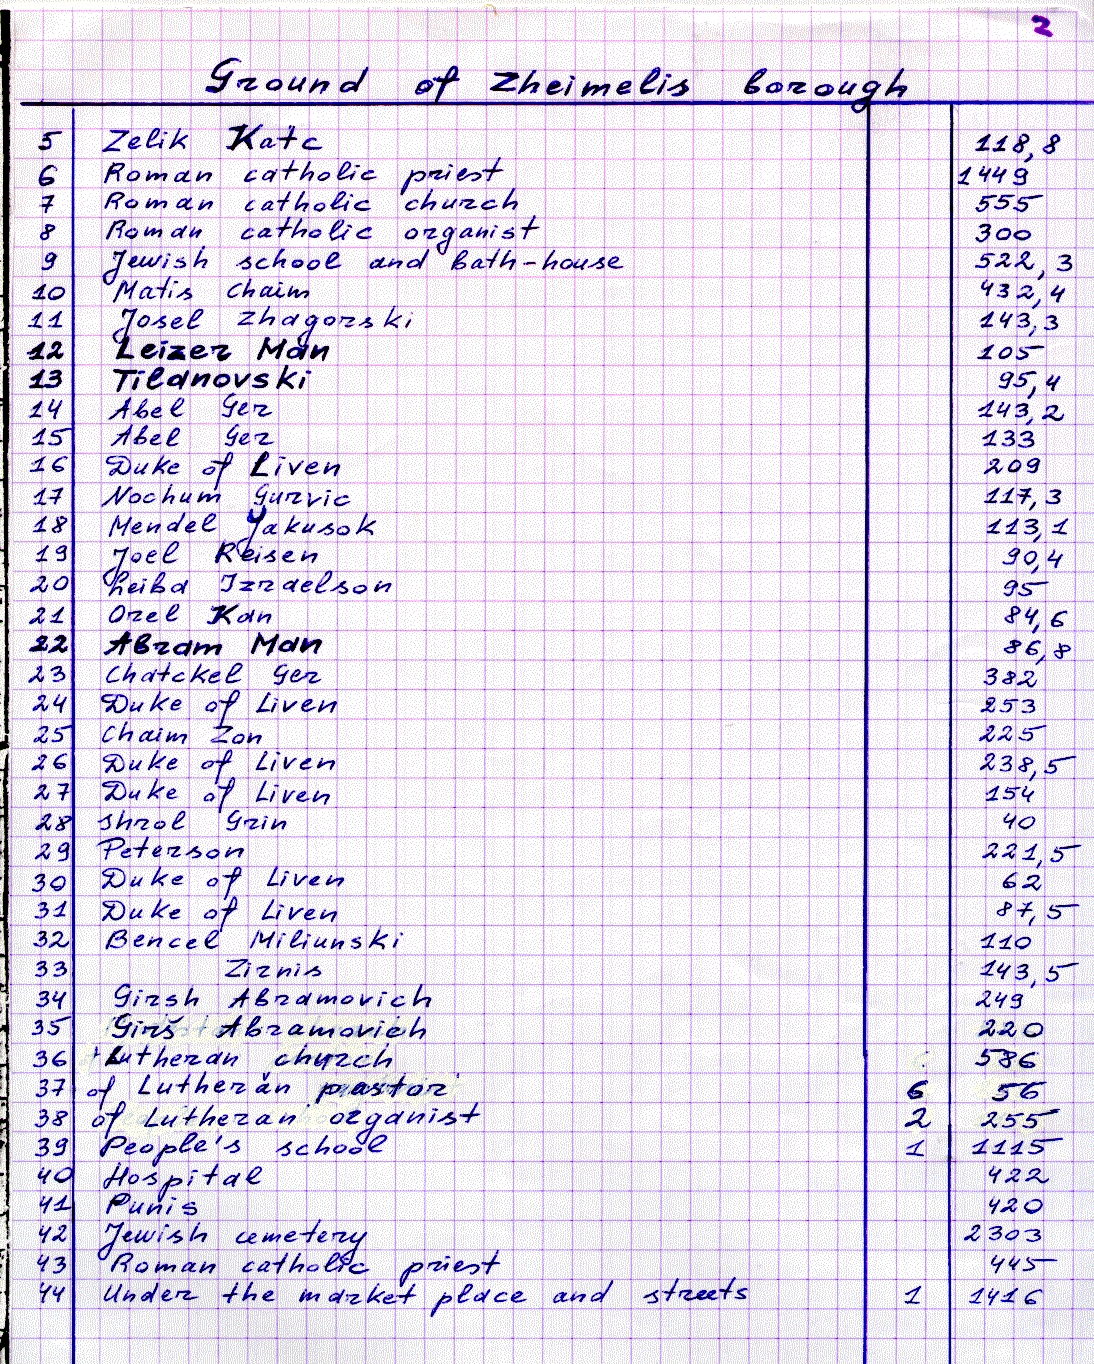 2
Ground of Zheimelis borough
5 Zelik Katc 118,8
6 Roman catholic priest 1449
7 Roman catholic church 555
8 Roman catholic organist 300
9 Jewish school and bath-house 522,3
10 Matis Chaim 432,4
11 Josel Zhagorski 143,3
12 Leizer Man 105
13 Tilanovski 95,4
14 Abel Ger 143,2
15 Abel Ger 133
16 Duke of Liven 209
17 Nochum Gurvic 117,3
18 Mendel Jakusok 113,1
19 Joel Reisen 90,4
20 Leiba Izraelson 95
21 Orel Kan 84,6
22 Abram Man 86,8
23 Chatckel Ger 382
24 Duke of Liven 253
25 Chaim Zon 225
26 Duke of Liven 238,5
27 Duke of Liven 154
28 Shrol Grin 40
29 Peterson 221,5
30 Duke of Liven 62
31 Duke of Liven 87,5
32 Bencel Miliunski 110
33 Zirnis 143,5
34 Girsh Abramovich 249
35 Girš Abramovich 220
36 Lutheran church 586
37 of Lutheran pastor 6 56
38 of Lutheran organist 2 255
39 People's school 1 1115
40 Hospital 422
41 Punis 420
42 Jewish cemetery 2303
43 Roman catholic priest 445
44 Under the market place and streets 1 1416